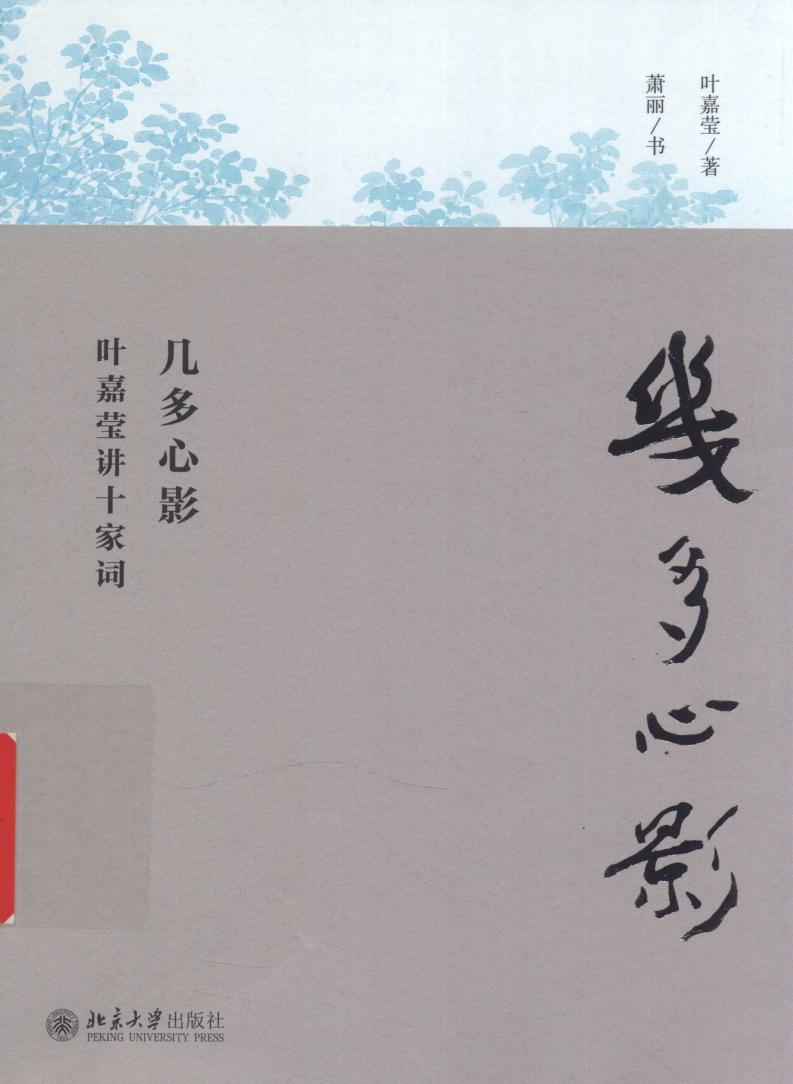 叶嘉莹/著
萧丽/书
幾多心影
几多心影
叶嘉莹讲十家词
北京大学出版社
PEKING UNIVERSITY PRESS